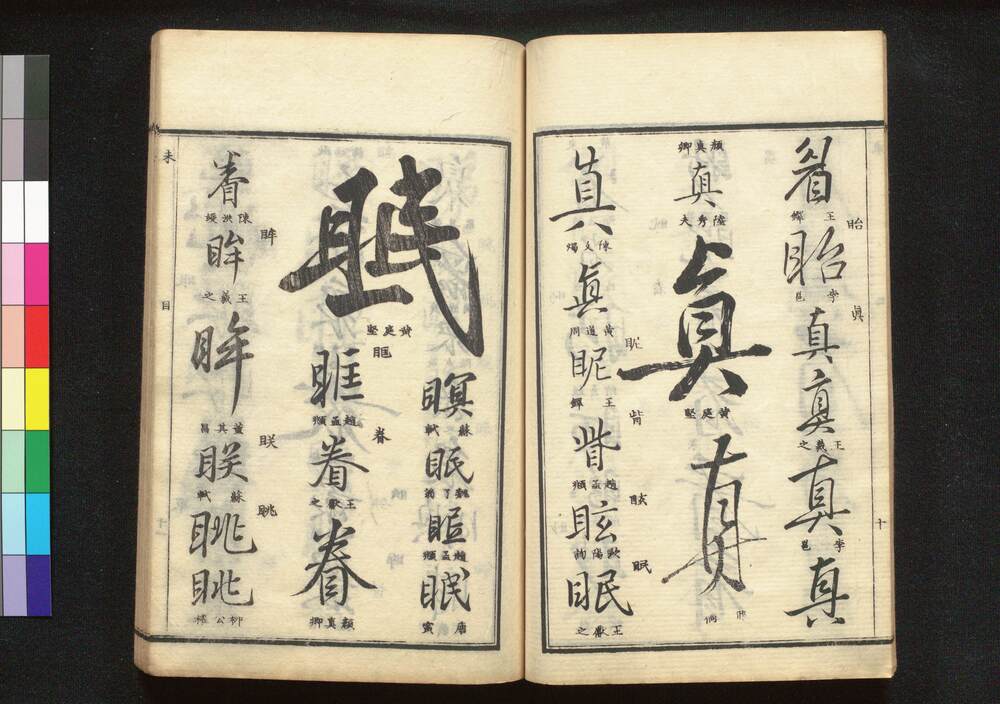 眙 眞 十
王鐸
眙
李邕
真
真
王羲之
真
李邕
真
顏真卿
真
陸秀夫
真
黃庭堅
真
眤 眥 眩 眠
真
陳文燭
眞
黃道周
眤
王鐸
眥
趙孟頫
眩
歐陽詢
眠
王獻之
瞑
蘇軾
眠
魏了翁
趙孟頫
眠
唐寅
眠
黃庭堅
眶 眷
眶
趙孟頫
眷
王獻之
眷
顏真卿
眸 眹 眺
眷
陳洪綬
眸
王羲之
眸
董其昌
眹
蘇軾
眺
眺
柳公權
未 目